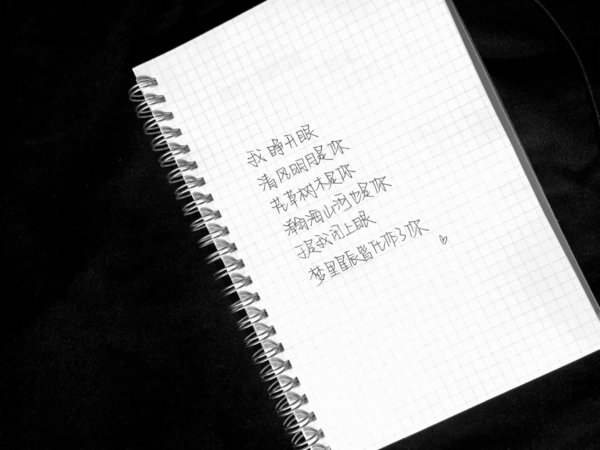 我睁开眼
清风明月是你
花草树木是你
瀚海山河也是你
于是我闭上眼
梦里星辰皆化作了你